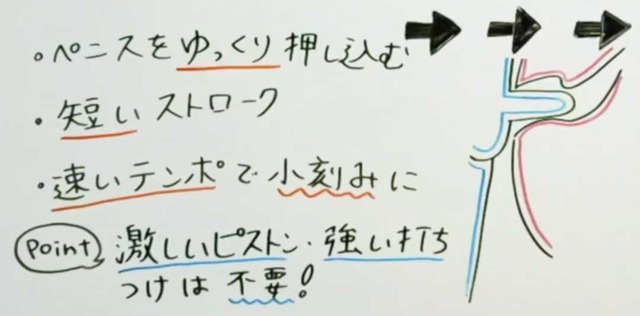 ・ペニスをゆっくり押し込む
・短いストローク
・速いテンポで小刻みに
Point 激しいピストン・強い打ち
つけは不要!